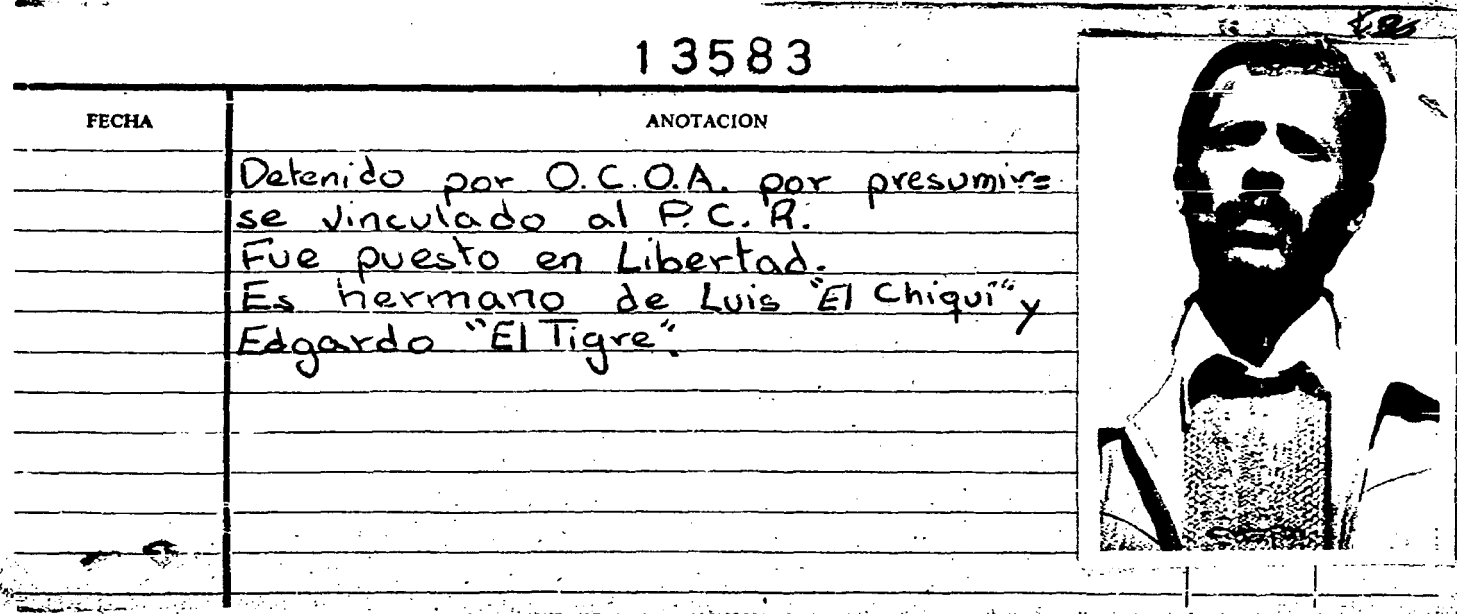 13583
FECHA ANOTACION
Detenido por O.C.O.A. por presumir=
se vinculado al P.C.R.
Fue puesto en Libertad.
Es hermano de Luis "El Chiqui" y
Edgardo "El Tigre".